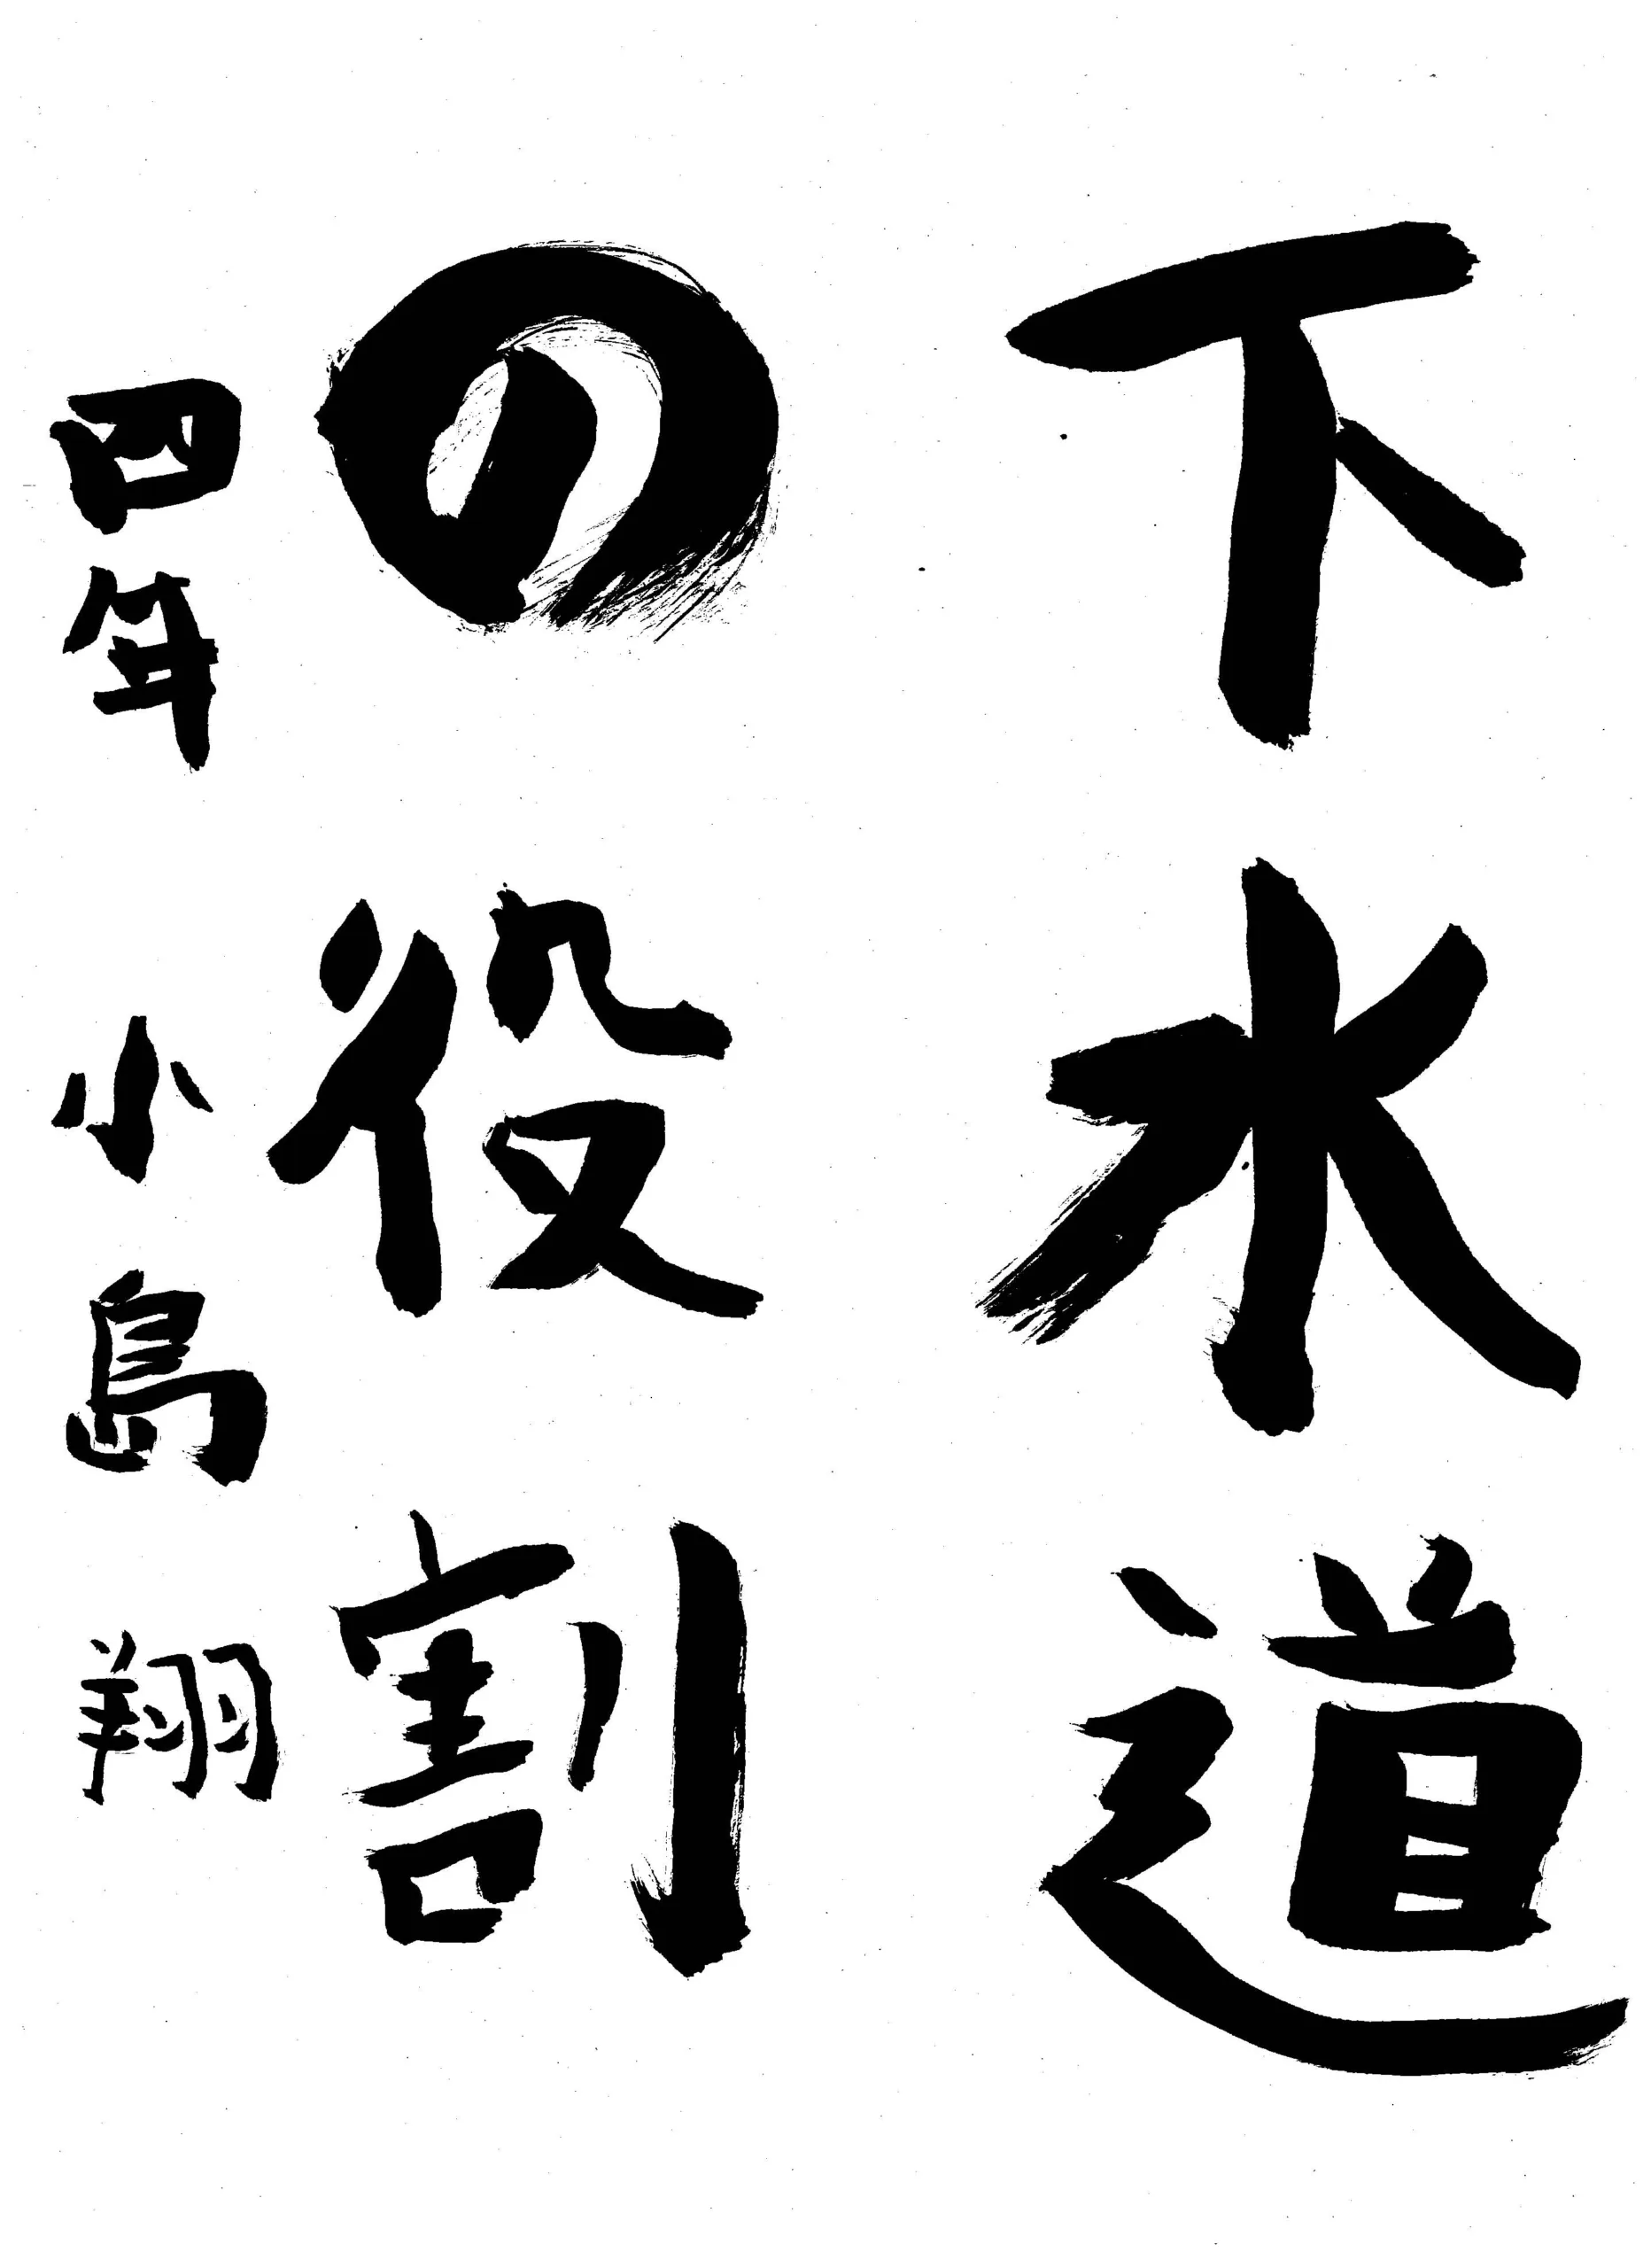 下水道
の役割
四年 小島 翔